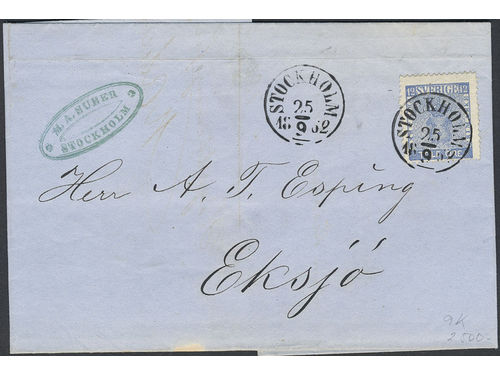 M. A. HUBER
STOCKHOLM
STOCKHOLM
25
9
18 62
12 SVERIGE 12
STOCKHOLM
25
9
18 62
Herr A. T. Esping
Eksjö
9K
2500:-